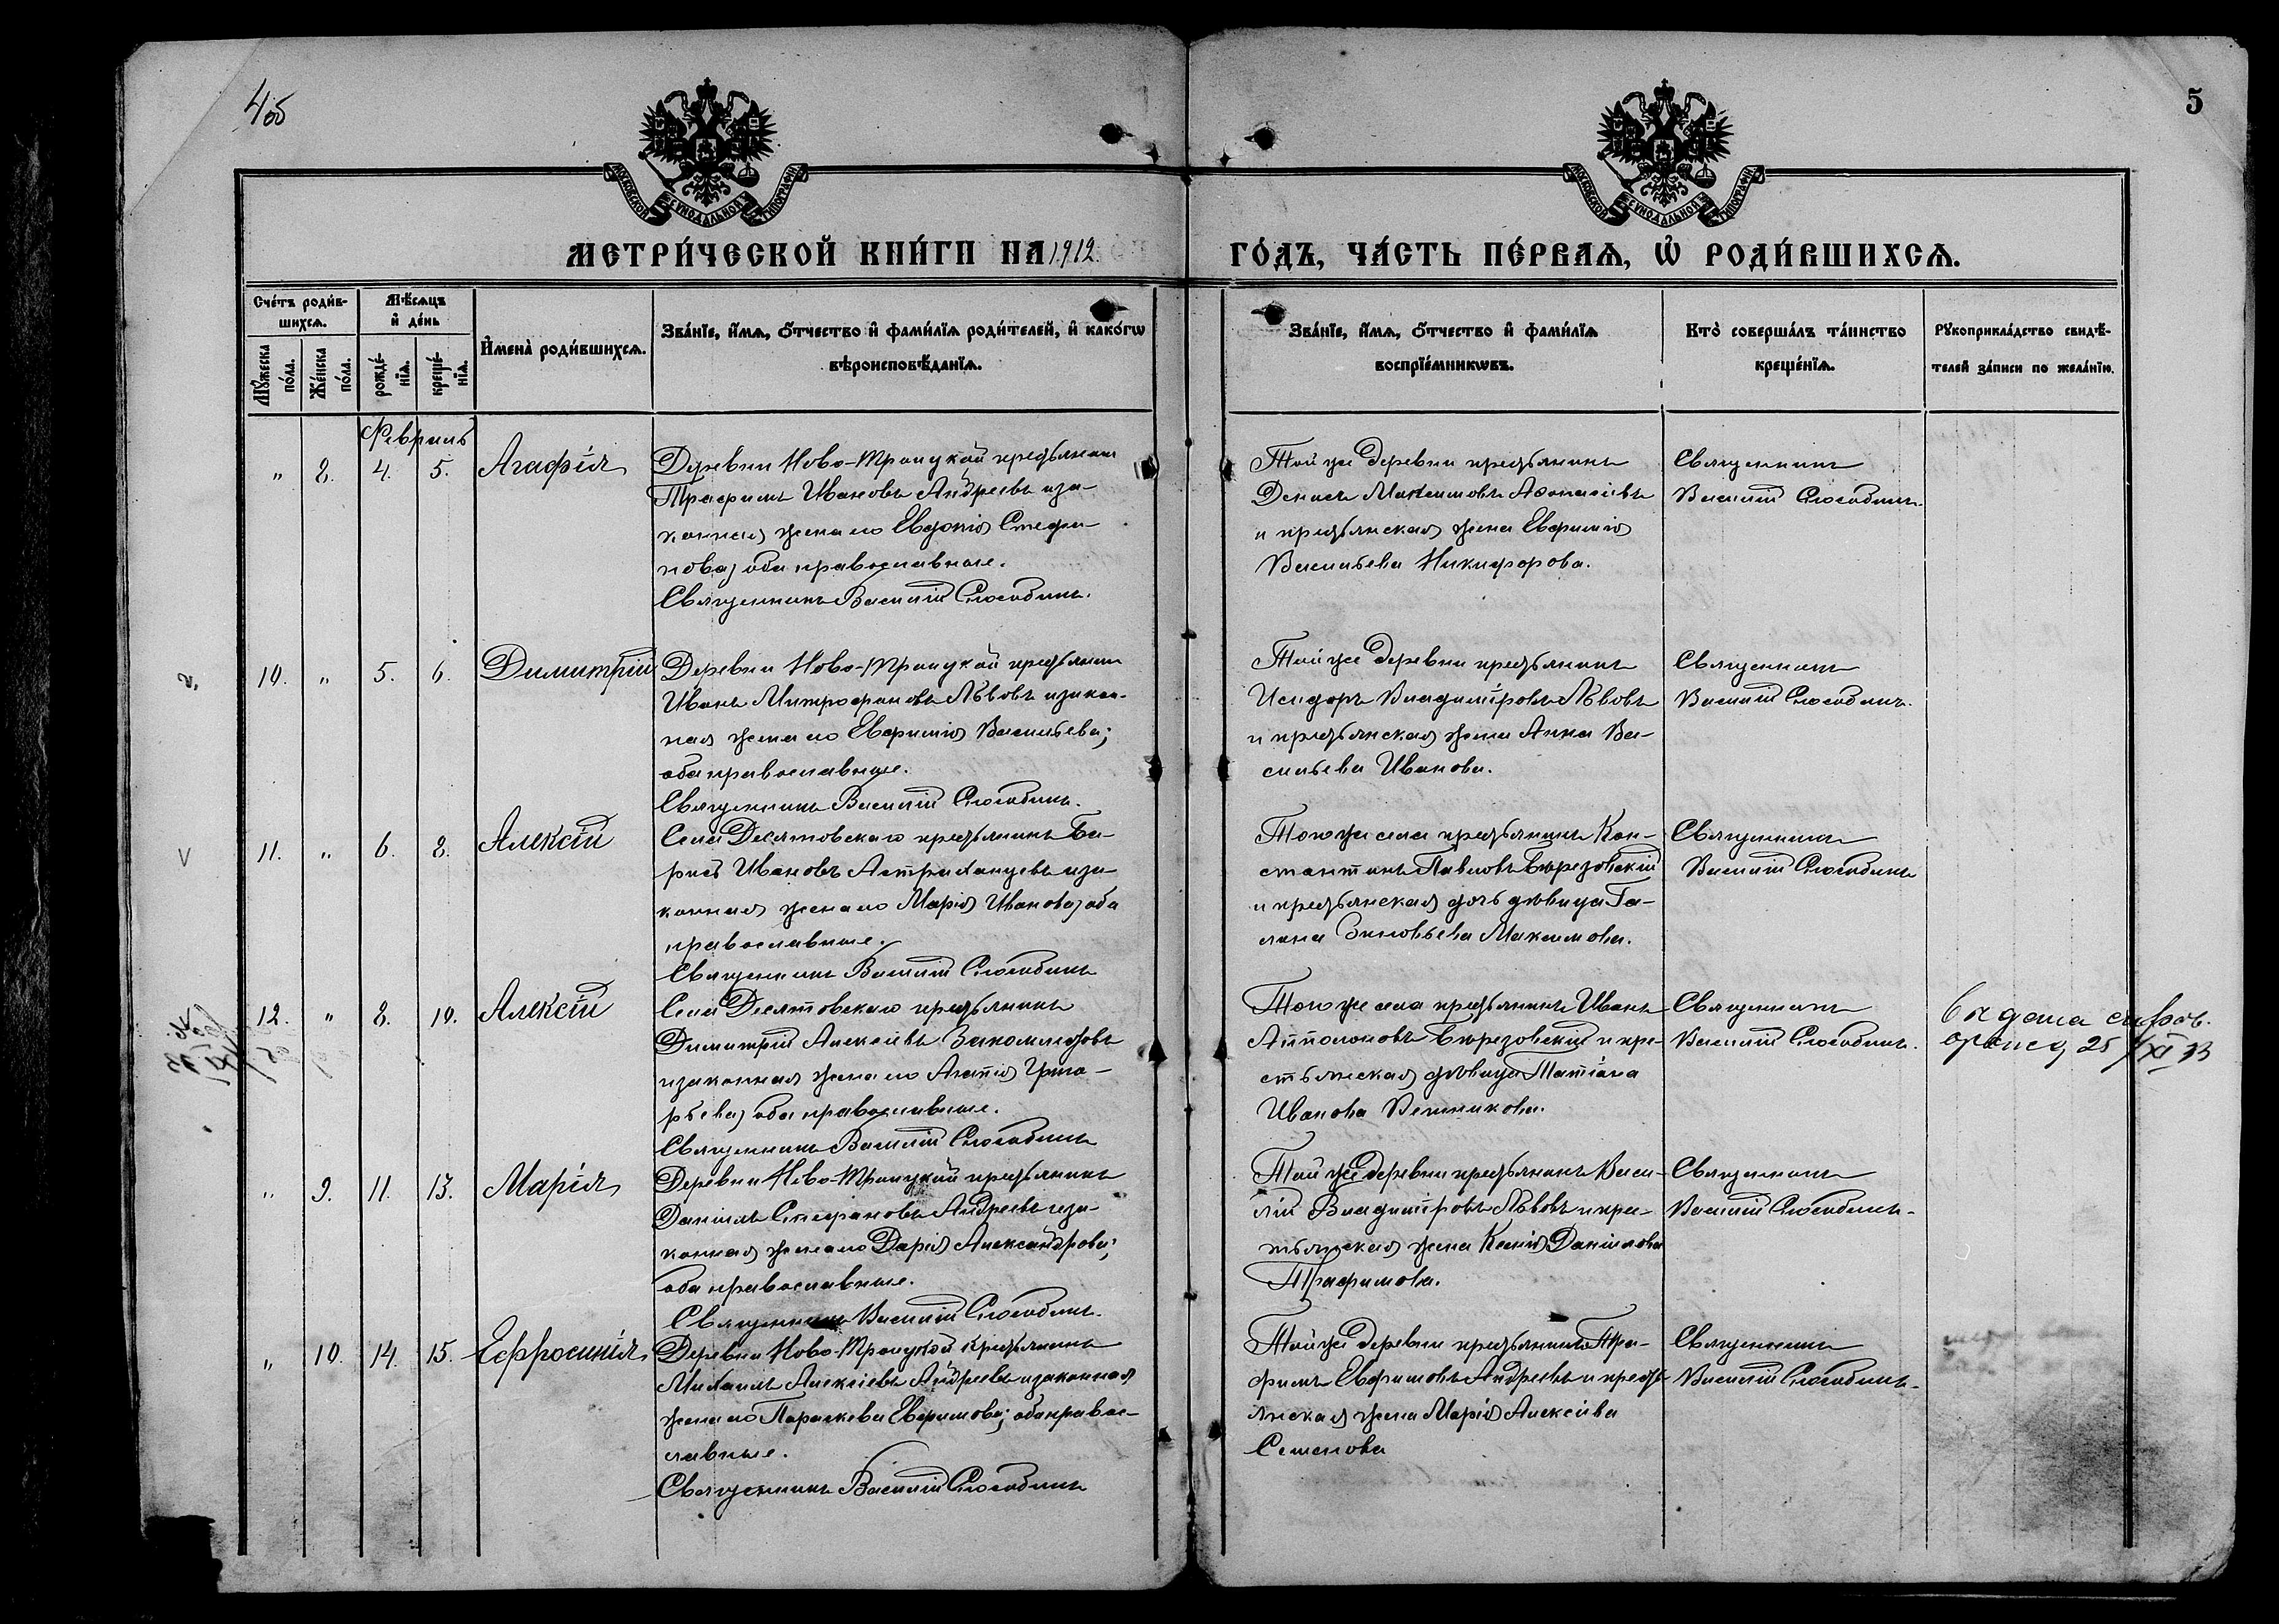 4об
5
МОСКОВСКОЙ СѴНОДАЛЬНОЙ ТИПОГРАФІИ
МОСКОВСКОЙ СѴНОДАЛЬНОЙ ТИПОГРАФІИ
МЕТРИ́ЧЕСКОЙ КНИ́ГИ НА 1912.
ГО́ДЪ, ЧА́СТЬ ПЕ́РВАѦ, Ѡ҆ РОДИ́ВШИХСѦ.
Сче́тъ роди́в-
шихсѧ.
Мѣ́сѧцъ
и҆ де́нь
Мꙋ́жеска
по́ла.
Же́нска
по́ла.
рожде́-
нїѧ.
креще́-
нїѧ.
И҆мена̀ роди́вшихсѧ.
Зва́нїе, и҆́мѧ, ѻ҆́тчество и҆ фами́лїѧ роди́телей, и҆ како́гѡ
вѣроисповѣ́данїѧ.
Зва́нїе, и҆́мѧ, ѻ҆́тчество и҆ фами́лїѧ
воспрїе́мникѡвъ.
Кто̀ соверша́лъ та́инство
креще́нїѧ.
Рꙋкоприкла́дство свидѣ́-
телей за́писи по жела́нїю.
Февраль
„ 8. 4. 5. Агафія
Деревни Ново-Троицкой крестьянин
Трафимъ Ивановъ Андреевъ и за-
конная жена его Евдокія Стефа-
нова, оба православные.
Священникъ Василій Слособинъ.
Той же деревни крестьянинъ
Денисъ Максимовъ Афонасіевъ
и крестьянская жена Евфимія
Васильева Никифорова.
Священникъ
Василій Слособинъ.
2.
10. „ 5. 6. Димитрій
Деревни Ново-Троицкой крестьянин
Иванъ Митрофановъ Львовъ и закон-
ная жена его Евфимія Васильева;
оба православные.
Священникъ Василій Слособинъ.
Той же деревни крестьянинъ
Исидоръ Владиміровъ Львовъ
и крестьянская жена Анна Ва-
сильева Иванова.
Священникъ
Василій Слособинъ.
V
11. „ 6. 8. Алексій
Села Десятовскаго крестьянинъ Ба-
рисъ Ивановъ Астраханцевъ и за-
конная жена его Марія Иванова, оба
православные.
Священникъ Василій Слособинъ
Того же села крестьянинъ Кон-
стантинъ Павловъ Березовскій
и крестьянская дочь дѣвица Га-
лина Зиновьева Максимова.
Священникъ
Василій Слособинъ
12. „ 8. 10. Алексій
Села Десятовскаго крестьянинъ
Димитрій Алексіевъ Закомлистовъ
и законная жена его Агапія Григо-
рьева, оба православные.
Священникъ Василій Слособинъ
Того же села крестьянинъ Иванъ
Апполоновъ Березовскій и кре-
стьянская дѣвица Татіана
Иванова Вешникова.
Священникъ
Василій Слособинъ.
выдана справ.
25/XI 33
„ 9. 11. 13. Марія
Деревни Ново-Троицкой крестьянинъ
Даніилъ Стефановъ Андреевъ и за-
конная жена его Дарія Александрова;
оба православные.
Священникъ Василій Слособинъ.
Той же деревни крестьянинъ Васи-
лій Владиміровъ Львовъ и крес-
тьянская жена Ксенія Даніилова
Трафимова.
Священникъ
Василій Слособинъ.
„ 10. 14. 15. Евфросинія
Деревни Ново-Троицкой крестьянинъ
Михаилъ Алексіевъ Андреевъ и законная
жена его Параскева Евфимова; оба правос-
лавные.
Священникъ Василій Слособинъ
Той же деревни крестьянинъ Тра-
фимъ Евфимовъ Андреевъ и кресть-
янская жена Марія Алексіева
Семенова
Священникъ
Василій Слособинъ.